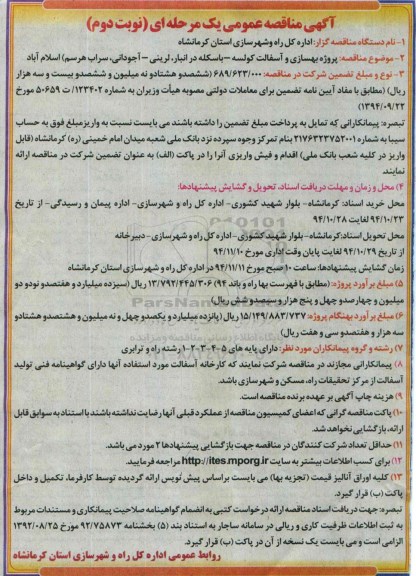 آگهی مناقصه عمومی یک مرحله ای (نوبت دوم)
۱- نام دستگاه مناقصه گزار: اداره کل راه وشهرسازی استان کرمانشاه
۲- موضوع مناقصه: پروژه بهسازی و آسفالت کولسه – باسکله در انبار، لرینی – آجودانی، سراب هرسم) اسلام آباد
۳- نوع و مبلغ تضمین شرکت در مناقصه: ۶۸۹/۶۲۳/۰۰۰ (ششصدو هشتادو نه میلیون و ششصدو بیست و سه هزار
ریال) (مطابق با مفاد آیین نامه تضمین برای معاملات دولتی مصوبه هیأت وزیران به شماره ۱۲۳۴۰۲/ ت ۵۰۶۵۹ مورخ
۱۳۹۴/۰۹/۲۲)
تبصره: پیمانکارانی که تمایل به پرداخت مبلغ تضمین را داشته باشند می بایست نسبت به واریز مبلغ فوق به حساب
سیبا به شماره ۲۱۷۶۳۲۳۷۵۳۰۰۱ بنام تمرکز وجوه سپرده نزد بانک ملی شعبه میدان امام خمینی (ره) کرمانشاه (قابل
واریز در کلیه شعب بانک ملی) اقدام و فیش واریزی آنرا را در پاکت (الف) به عنوان تضمین شرکت در مناقصه ارائه
نمایند.
۴) محل و زمان و مهلت دریافت اسناد، تحویل و گشایش پیشنهادها:
محل خرید اسناد: کرمانشاه- بلوار شهید کشوری- اداره کل راه و شهرسازی- اداره پیمان و رسیدگی- از تاریخ
۹۴/۱۰/۲۳ لغایت ۹۴/۱۰/۲۸
محل تحویل اسناد:کرمانشاه- بلوار شهید کشوری- اداره کل راه و شهرسازی- دبیرخانه
از تاریخ ۹۴/۱۰/۲۹ لغایت پایان وقت اداری مورخ ۹۴/۱۱/۱۰
زمان گشایش پیشنهادها: ساعت ۱۰ صبح مورخ ۹۴/۱۱/۱۱ در اداره کل راه و شهرسازی استان کرمانشاه
۵) مبلغ برآورد پروژه: (مطابق با فهرست بها راه و باند ۹۴) ۱۳/۷۹۲/۴۴۵/۳۰۶ ریال (سیزده میلیارد و هفتصدو نودو دو
میلیون و چهارصدو چهل و پنج هزار و سیصدو شش ریال)
۶) مبلغ برآورد بهنگام پروژه: ۱۵/۱۴۹/۸۸۳/۷۳۷ ریال (پانزده میلیارد و یکصدو چهل و نه میلیون و هشتصدو هشتادو
سه هزار و هفتصدو سی و هفت ریال)
۷) رشته و گروه پیمانکاران مورد نظر: دارای پایه های ۵-۴-۳-۲-۱ رشته راه و ترابری
۸) پیمانکارانی مجازند در مناقصه شرکت نمایند که کارخانه آسفالت مورد استفاده آنها دارای گواهینامه فنی تولید
آسفالت از مرکز تحقیقات راه، مسکن و شهرسازی باشد.
۹) هزینه چاپ آگهی بر عهده برنده مناقصه است.
۱۰) پاکت مناقصه گرانی که اعضای کمیسیون مناقصه از عملکرد قبلی آنها رضایت نداشته باشند با استناد به سوابق قابل
ارائه، بازگشایی نخواهد شد.
۱۱) حداقل تعداد شرکت کنندگان در مناقصه جهت بازگشایی پیشنهادها ۲ مورد می باشد.
۱۲) برای کسب اطلاعات بیشتر به سایت http://ites.mporg.ir مراجعه فرمایید.
۱۳) کلیه اوراق آنالیز قیمت (تجزیه بها) می بایست براساس پیش نویس ارائه گردیده توسط کارفرما، تکمیل و داخل
پاکت (ب) قرار گیرد.
تبصره: جهت دریافت اسناد مناقصه ارائه درخواست کتبی به انضمام گواهینامه صلاحیت پیمانکاری و مستندات مربوط
به ثبت اطلاعات ظرفیت کاری و ریالی در سامانه ساجار به استناد بند (۵) بخشنامه ۹۲/۷۵۸۷۳ مورخ ۱۳۹۲/۰۸/۲۵
الزامی است و می بایست یک نسخه از آن در پاکت (ب) قرار گیرد.
روابط عمومی اداره کل راه و شهرسازی استان کرمانشاه